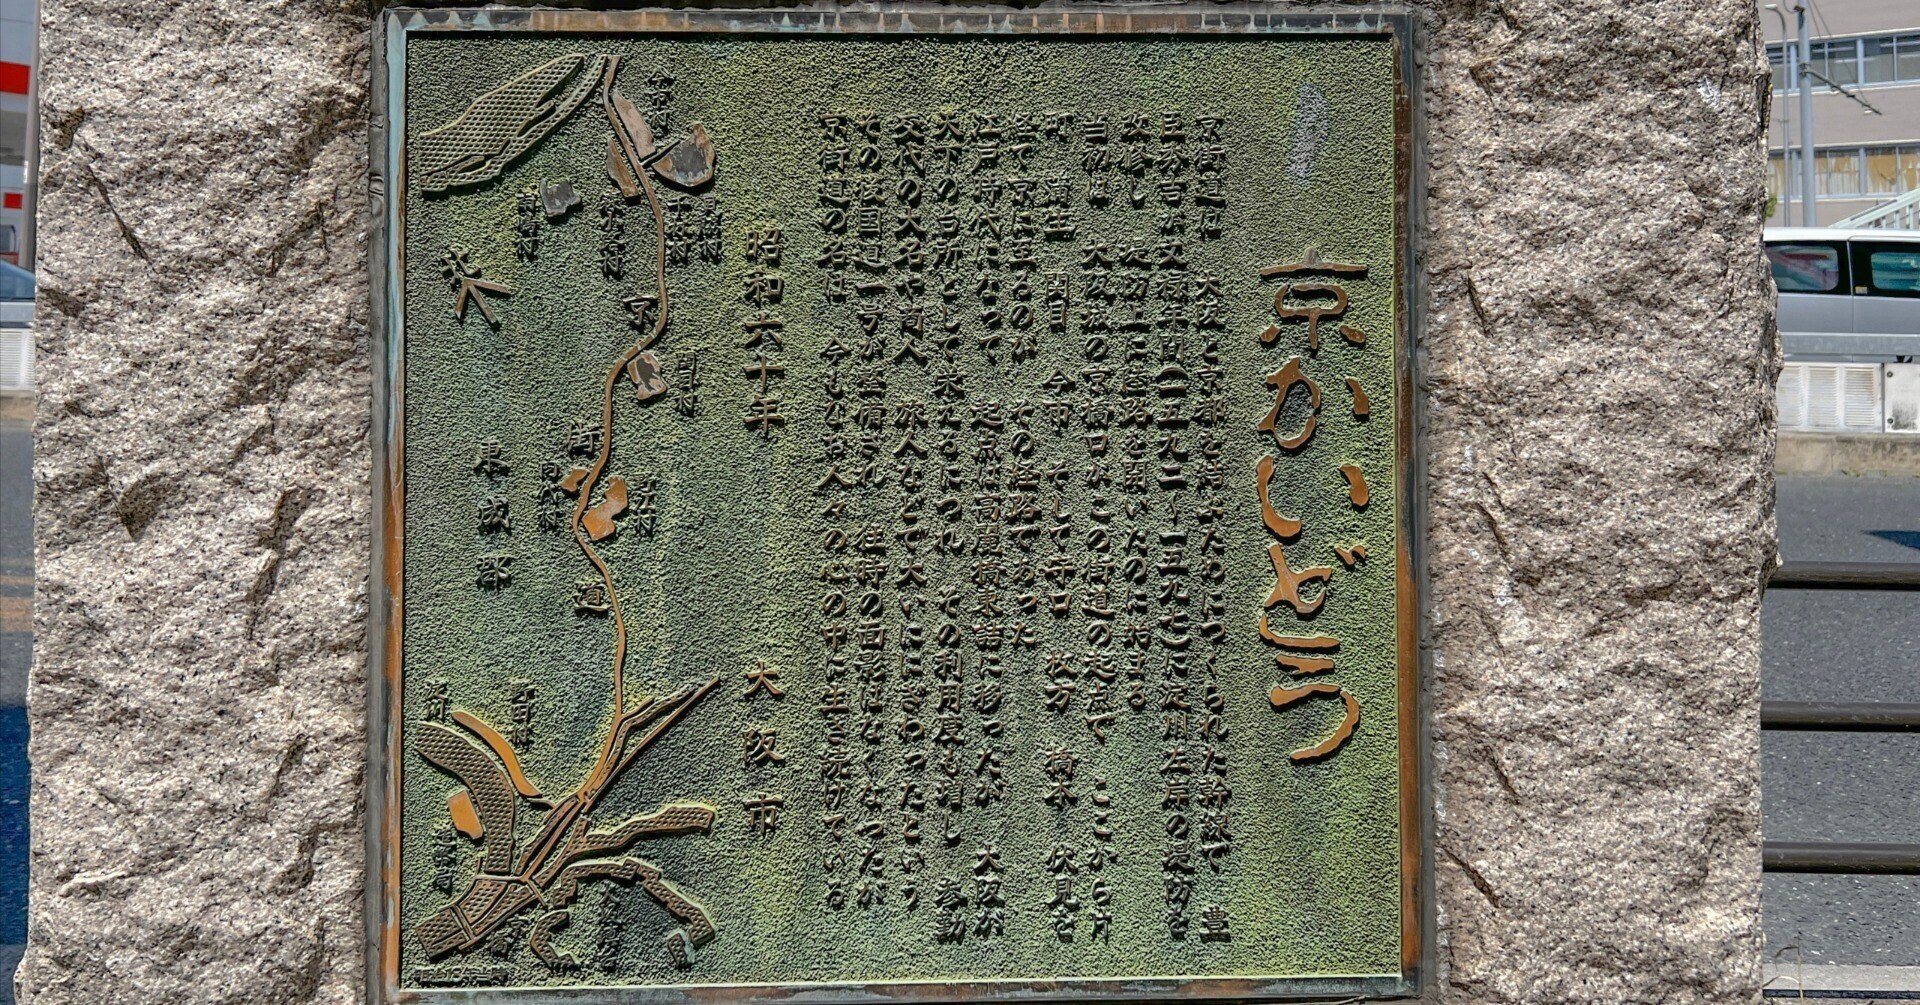 京かいどう
京街道は 大阪と京都を結ぶためにつくられた幹線で 豊
臣秀吉が文禄年間(一五九二~一五九六)に淀川左岸の堤防を
改修し 堤防上に陸路を開いたのに始まる
当初は 大阪城の京橋口がこの街道の起点で ここから片
町 蒲生 関目 今市 そして守口 枚方 橋本 伏見を
経て京に至るのが その経路であった
江戸時代になって 起点は高麗橋東詰に移ったが 大阪が
天下の台所として栄えるにつれ その利用度も増し 参勤
交代の大名や商人 旅人などで大いににぎわったという
その後国道一号が整備され 往時の面影はなくなったが
京街道の名は 今もなお人々の心の中に生き続けている
昭和六十年 大阪市
京
街
道
関目村
内代村
東成郡